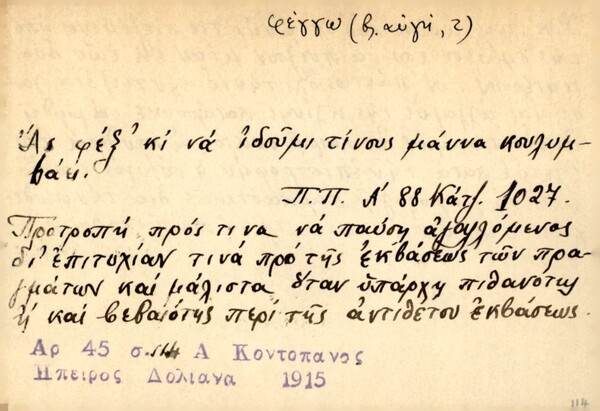 φέγγω (β. αὐγή, 2)
Ἄς φέξ' κὶ νὰ ἰδοῦμι τίνους μάννα κουλυμ-
βάει.
Π.Π. Α' 88 Κάτζ. 1027.
Προτροπὴ πρός τινα νὰ παύσῃ ἀγαλλόμενος
δι' ἐπιτυχίαν τινὰ πρὸ τῆς ἐκβάσεως τῶν πρα-
γμάτων καὶ μάλιστα ὅταν ὑπάρχῃ πιθανότης
ἢ καὶ βεβαιότης περὶ τῆς ἀντιθέτου ἐκβάσεως.
Αρ 45 σ. 114 Α Κοντοπανος
Ηπειρος Δολιανα 1915
114